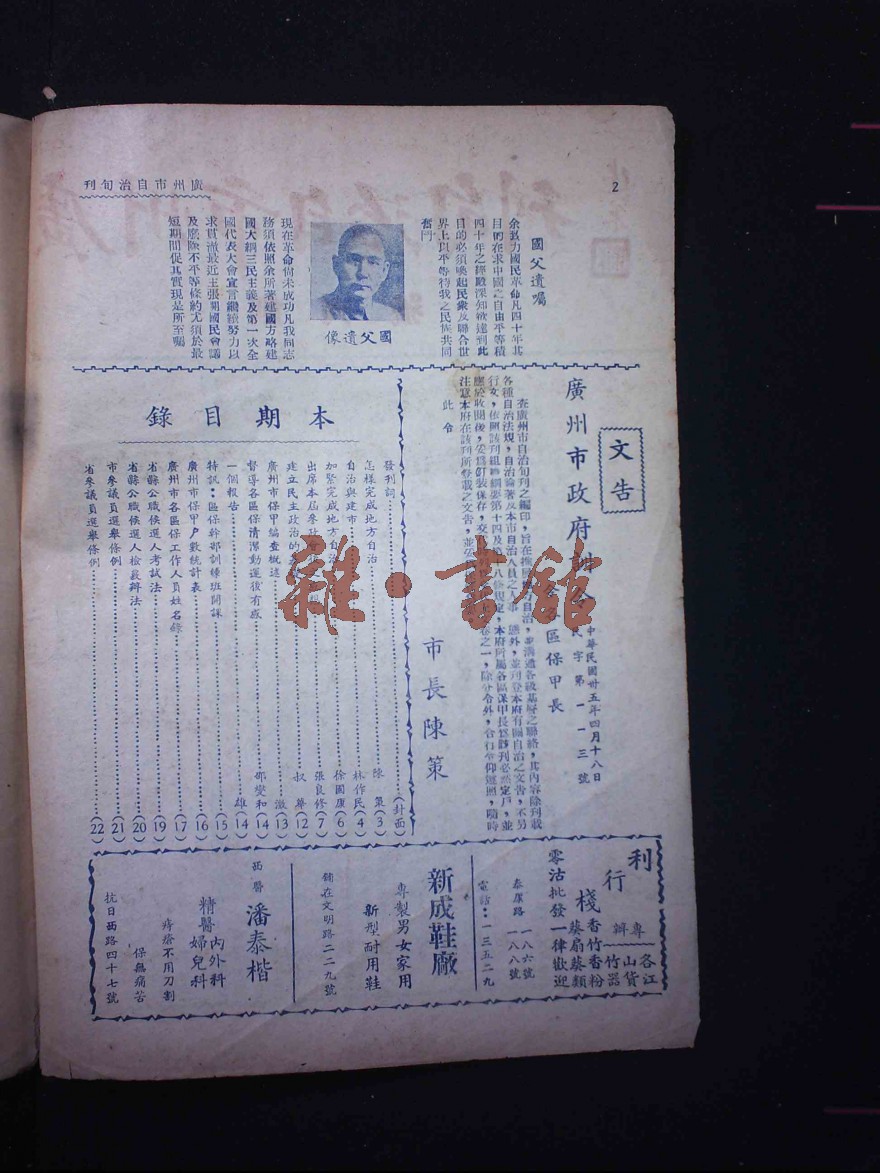 2
廣州市自治旬刊
國父遺囑
余致力國民革命凡四十年其
目的在求中國之自由平等積
四十年之經驗深知欲達到此
目的必須喚起民衆及聯合世
界上以平等待我之民族共同
奮鬥
國父遺像
現在革命尚未成功凡我同志
務須依照余所著建國方略建
國大綱三民主義及第一次全
國代表大會宣言繼續努力以
求貫澈最近主張開國民會議
及廢除不平等條約尤須於最
短期間促其實現是所至囑
文告
廣州市政府
中華民國卅五年四月十八日
民字第一一三號
區保甲長
查廣州市自治旬刊之編印,旨在推
自治,並溝通各級基層之聯絡,其內容除刊載
各種自治法規,自治論著及本市自治人員之人事
態外,並刊登本府有關自治之文告,不另
行文,依照該刊組織綱要第十四及第
八條規定,本府所屬各區保甲長爲該刊必然定戶,並
應於收閱後,妥爲訂裝保存,交
之一,除分令外,合行令仰遵照,隨時
注意本府在該刊所登載之文告,並
此令
市長陳策
本期目錄
發刊詞(封面)
怎樣完成地方自治 陳策(3)
自治與建市 林作民(4)
加緊完成地方自治 徐國康(6)
出席本屆參政會 張良修(7)
建立民主政治的 叔華(12)
廣州市保甲編查概述 澂(13)
督導各區保清潔動運後有感 邵燮和(14)
一個報告 雄(14)
特訊:區保幹部訓練班開課(15)
廣州市保甲戶數統計表(16)
廣州市各區保工作人員姓名錄(17)
省縣公職候選人考試法(19)
省縣公職候選人檢覈辦法(20)
市參議員選舉條例(21)
省參議員選舉條例(22)
利行棧
專辦
各江
山貨
竹器
香竹香粉
葵扇葵類
零沽批發一律歡迎
泰康路一八六號
一八八號
電話:一三五二九
新成鞋廠
專製男女家用
新型耐用鞋
鋪在文明路二二九號
西醫潘泰楷
精醫內外科
婦兒科
痔瘡不用刀割
保無痛苦
抗日西路四十七號
雜·書館